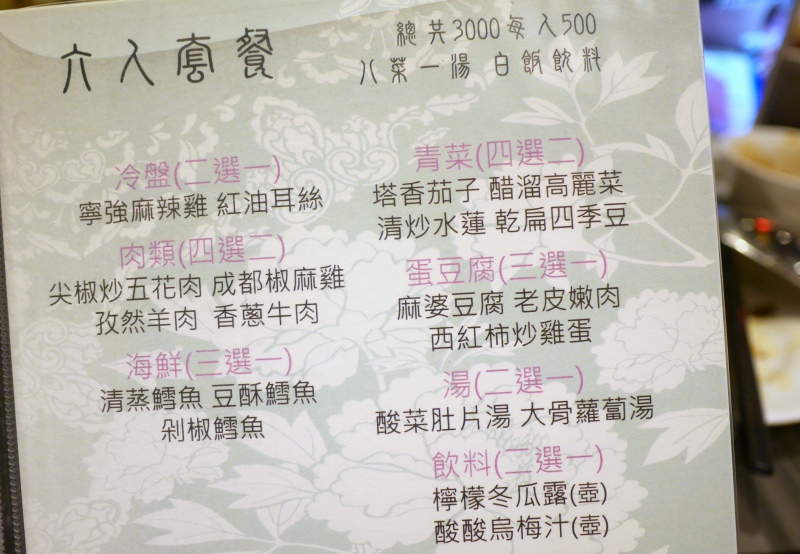 六人套餐
總共3000每人500
八菜一湯 白飯飲料
冷盤(二選一)
寧強麻辣雞 紅油耳絲
肉類(四選二)
尖椒炒五花肉 成都椒麻雞
孜然羊肉 香蔥牛肉
海鮮(三選一)
清蒸鱈魚 豆酥鱈魚
剁椒鱈魚
青菜(四選二)
塔香茄子 醋溜高麗菜
清炒水蓮 乾扁四季豆
蛋豆腐(三選一)
麻婆豆腐 老皮嫩肉
西紅柿炒雞蛋
湯(二選一)
酸菜肚片湯 大骨蘿蔔湯
飲料(二選一)
檸檬冬瓜露(壺)
酸酸烏梅汁(壺)